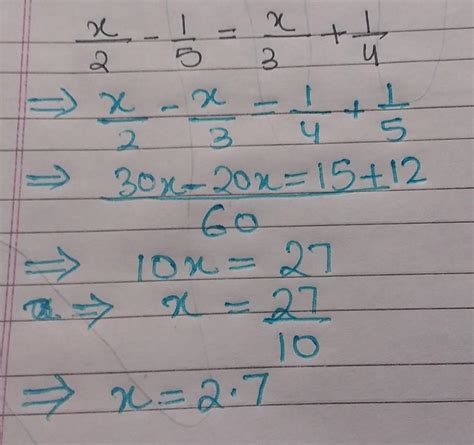 x/2 - 1/5 = x/3 + 1/4
⇒ x/2 - x/3 = 1/4 + 1/5
⇒ 30x - 20x = 15 + 12 / 60
⇒ 10x = 27
⇒ x = 27/10
⇒ x = 2.7